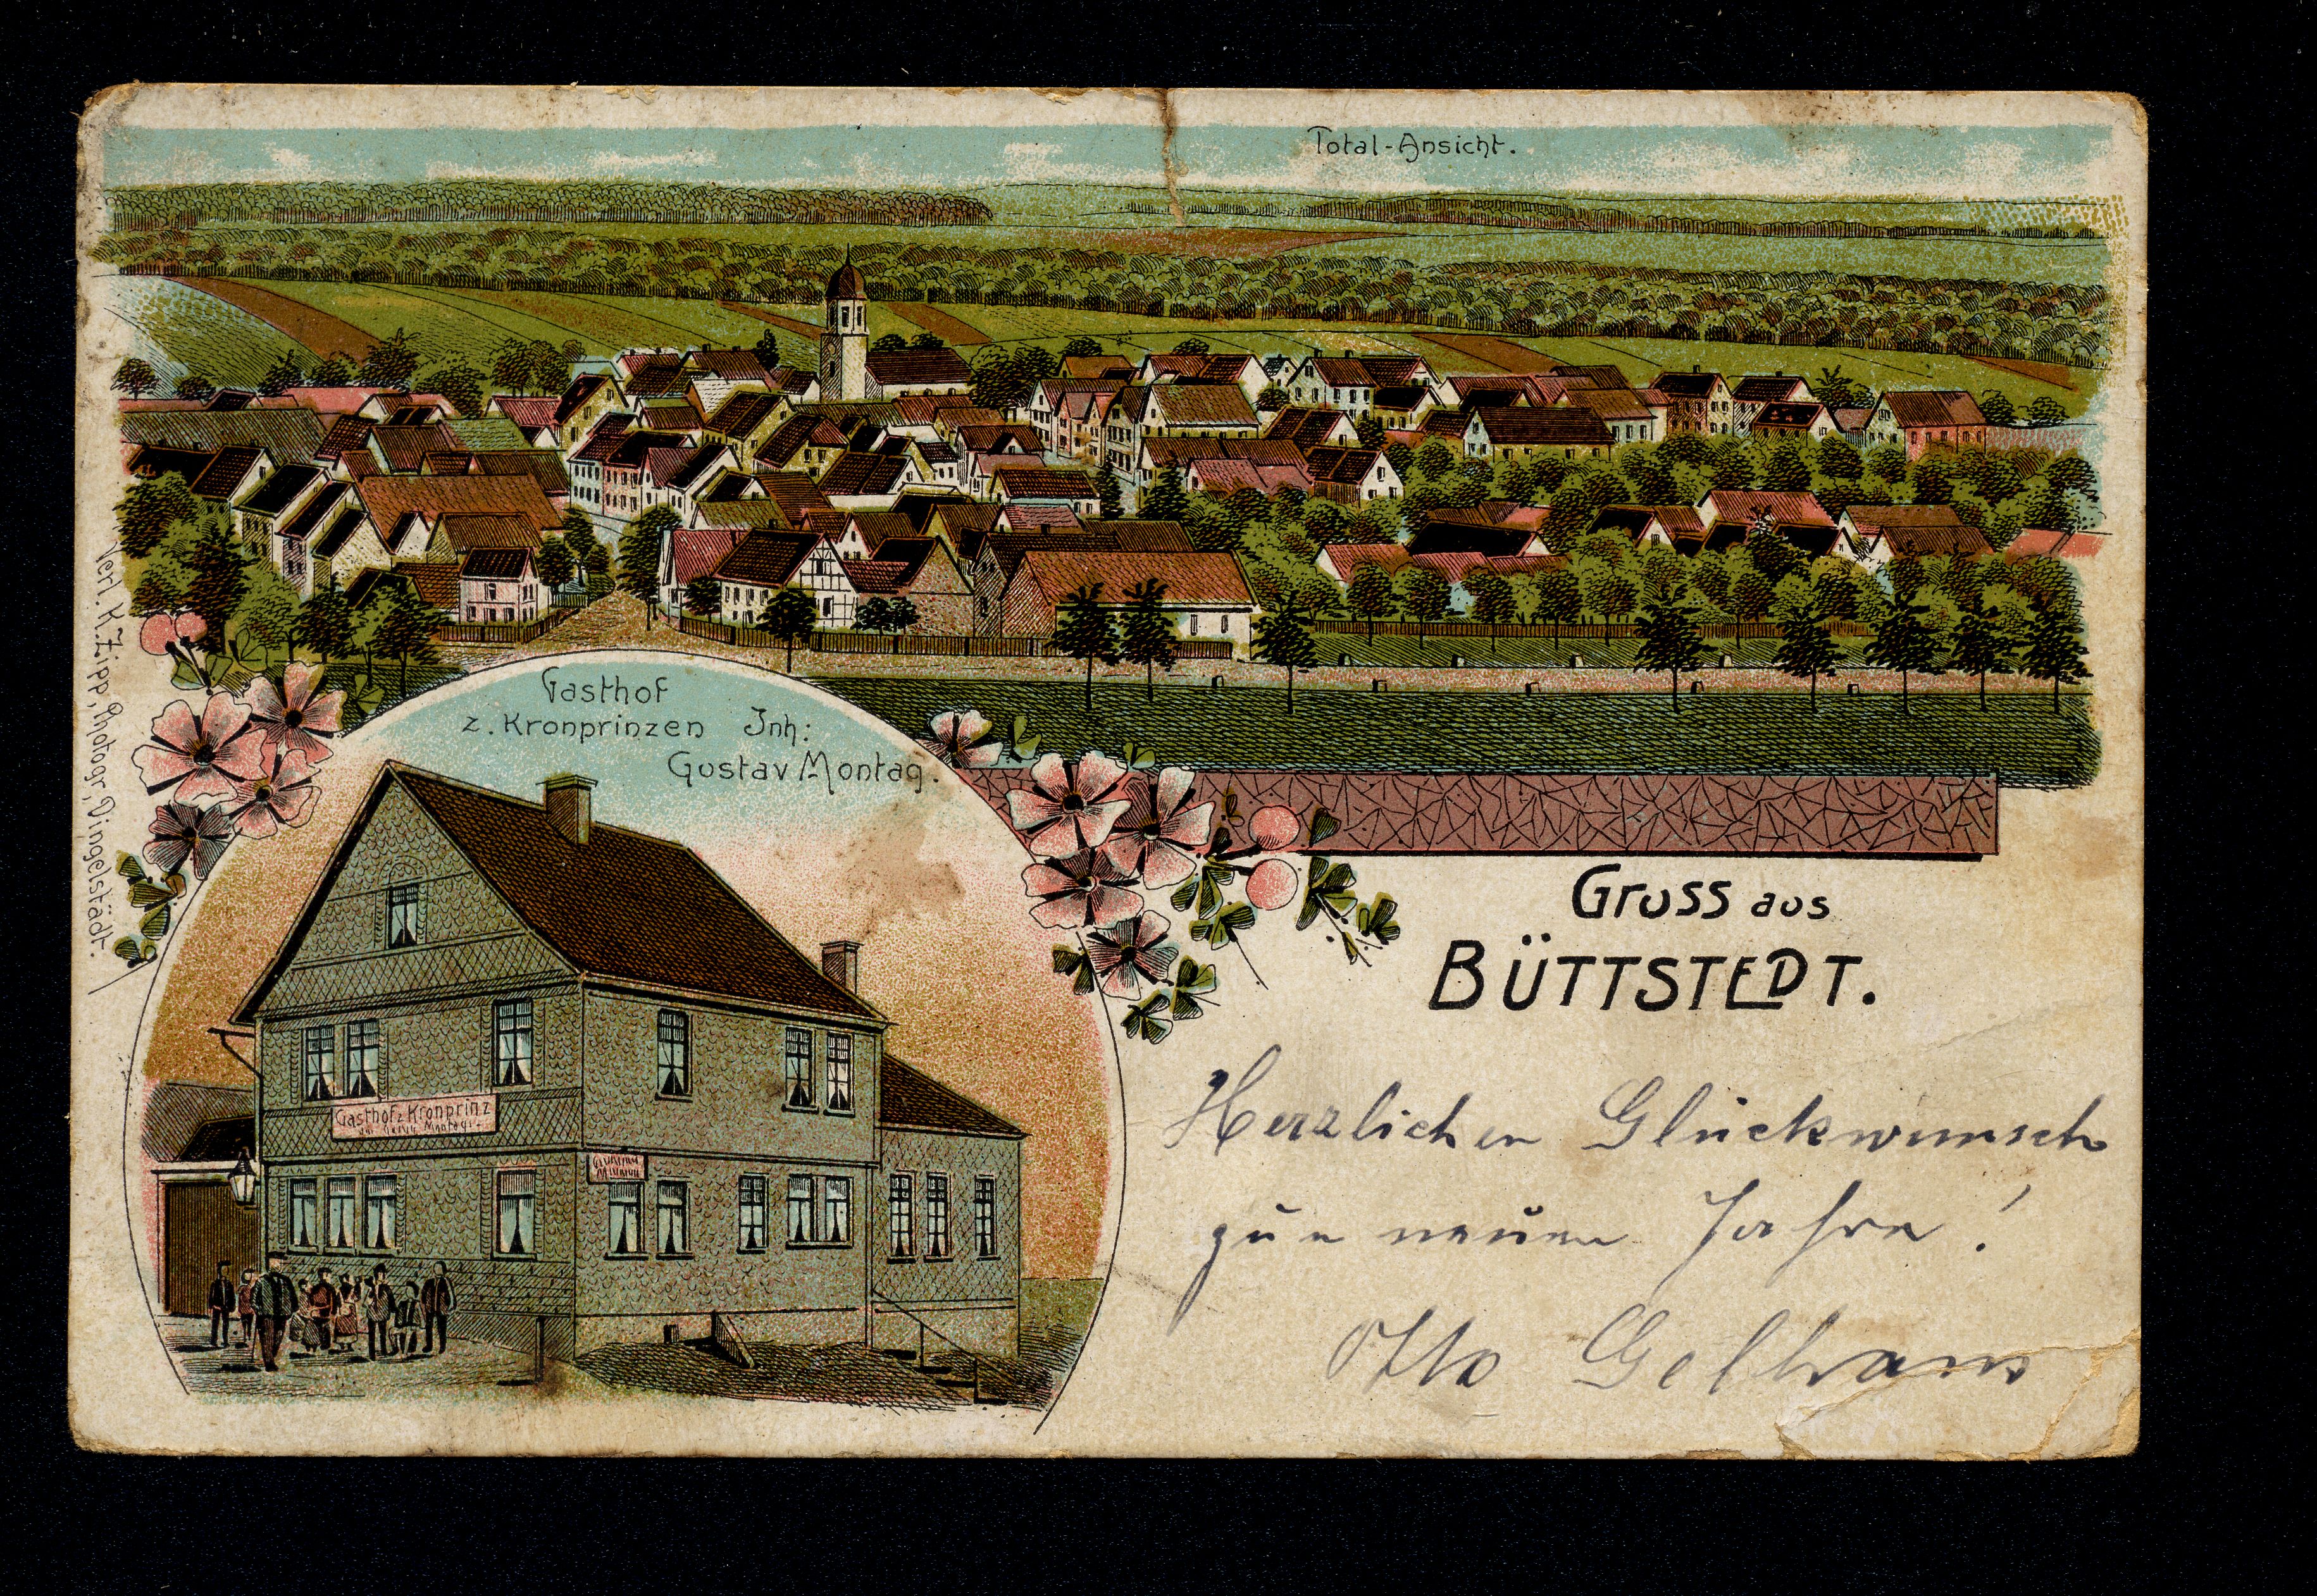 Total-Ansicht.
Verl. K. Zipp, Photogr, Dingelstädt.
Gasthof
z. Kronprinzen Inh:
Gustav Montag.
Gasthof z Kronprinz
Montag
Gruss aus
BÜTTSTEDT.
Herzlichen Glückwunsch
zum neuen Jahre!
Otto Gelhaus